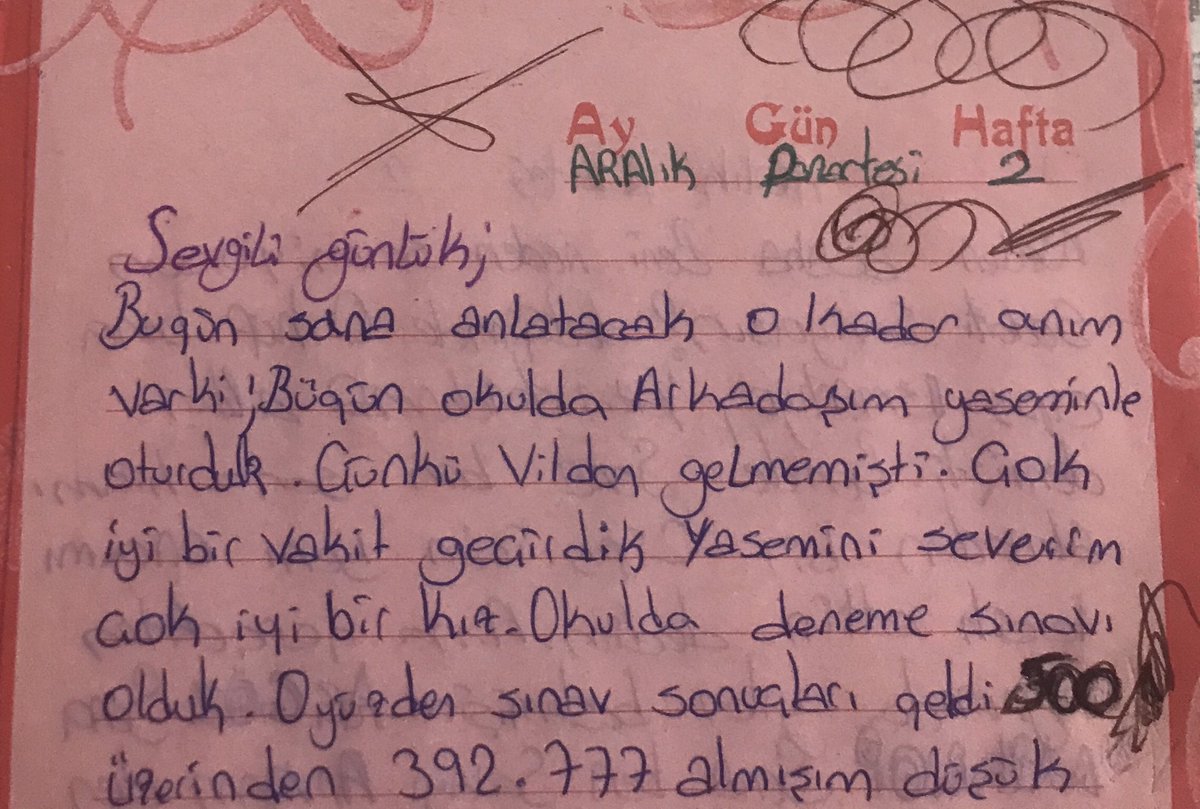 Ay Gün Hafta
ARALIK Pazartesi 2
Sevgili günlük;
Bugün sana anlatacak o kadar anım
varki; Bügün okulda Arkadaşım yaseminle
oturduk. Çünkü Vildan gelmemişti. Çok
iyi bir vakit geçirdik Yasemini severim
çok iyi bir kız. Okulda deneme sınavı
olduk. Oyüzden sınav sonuçları geldi 500
üzerinden 392.777 almışım düşük